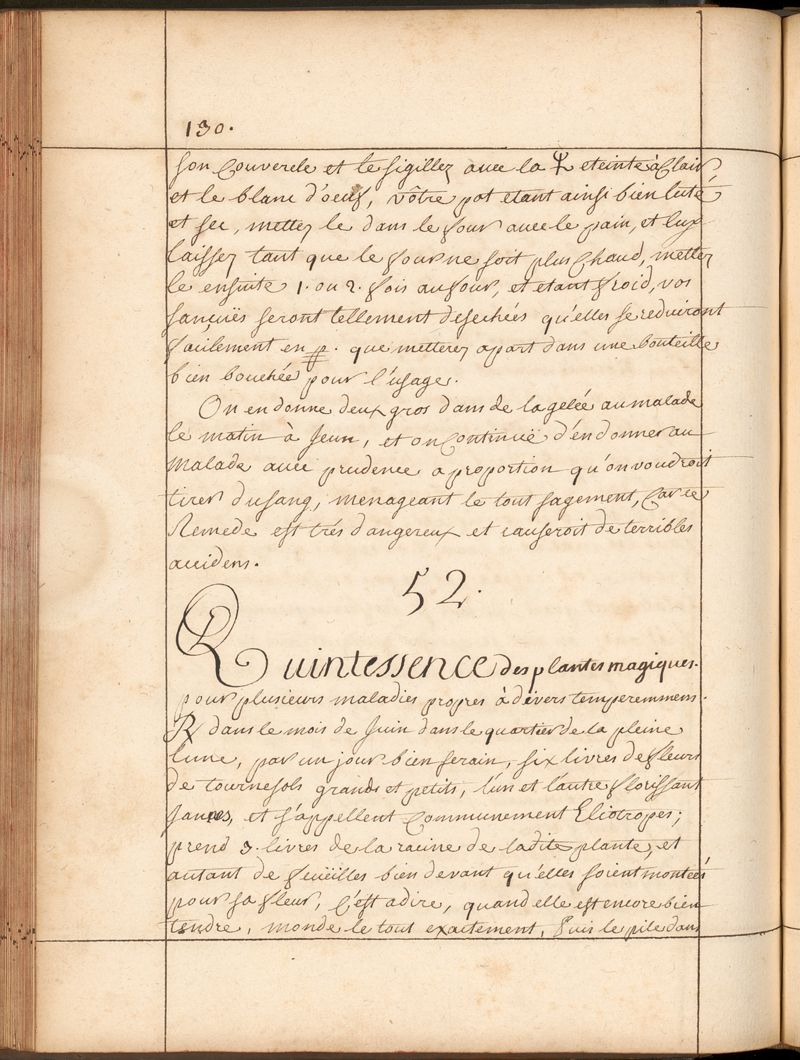 130.
son Couvercle et le sigillez avec la eteinte à l'air
et le blanc d'oeuf, vôtre pot etant ainsi bien luté
et sec, mettez le dans le four avec le pain, et l'uy
laissez tant que le four ne soit plus Chaud, mettez
le ensuite 1. ou 2. fois au four, et etant froid, vos
sangues seront tellement desechées qu'elles se reduiront
facilement en p. que metterez apart dans une bouteille
bien bouchée pour l'usage.
On en donne deux gros dans de la gelée au malade
le matin à Jeun, et on Continuë d'en donner au
Malade avec prudence a proportion qu'on voudroit
tirer du sang, menageant le tout sagement, Car ce
Remede est trés dangereux et causeroit de terribles
accidens.
52.
Quintessence des plantes magiques.
pour plusieurs maladies propres à divers temperemmens.
℞ dans le mois de Juin dans le quartier de la pleine
lune, par un jour bien serain, six livres de fleurs
de tournesols grands et petits, l'un et l'autre florissant
Jaunes, et s'appellent Communement Eliotropes;
prend 3. livres de la racine de ladite plante, et
autant de feüilles bien devant qu'elles soient montées
pour sa fleur, C'est adire, quand elle est encore bien
tendre, monde le tout exactement, Puis le pile dans